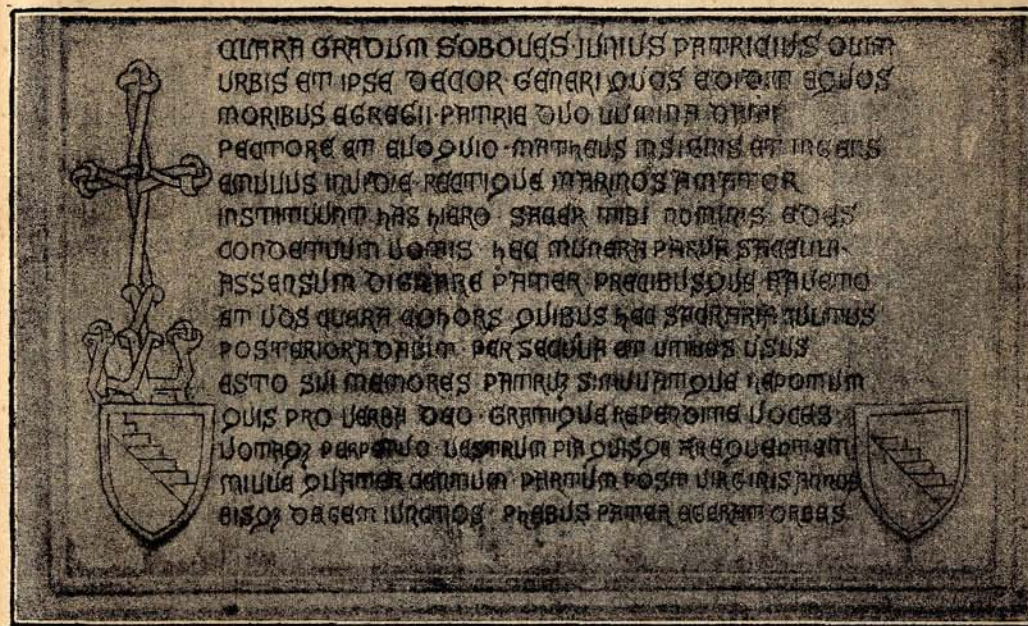 CLARA GRADUM SOBOLES · IUNIUS PATRICIUS OLIM
URBIS ET IPSE DECOR GENERI QUOS EDIDIT EQUOS
MORIBUS EGREGII · PATRIE DUO LUMINA
PECTORE ET ELOQUIO · MATHEUS INSIGNIS ET INGENS
EMULUS INUIDIE · RECTIQUE MARINUS AMATOR
INSTITUUNT HAS HIERO SACER TIBI NOMINIS EDES
CONDE TUUM HEC MUNERA PARUA SACELLI ·
ASSENSUM DIGNARE PATER PRECIBUSQUE FAUETO
ET UOS CLARA COHORS QUIBUS HEC SACRARIA CULTUS
POSTERIORA DABIT · PER SECULA ET USUS
ESTO SUI MEMORES SIMULATQUE NEPOTUM
QUIS PRO UERBA DEO · GRATIQUE REPENDITE UOCES ·
PERPETUO · UESTRUM PIA
MILLE QUATER CENTUM PARTUM POST UIRGINIS ANNOS
DECEM IUNCTOS · PHEBUS PATER EGERAT ORBES